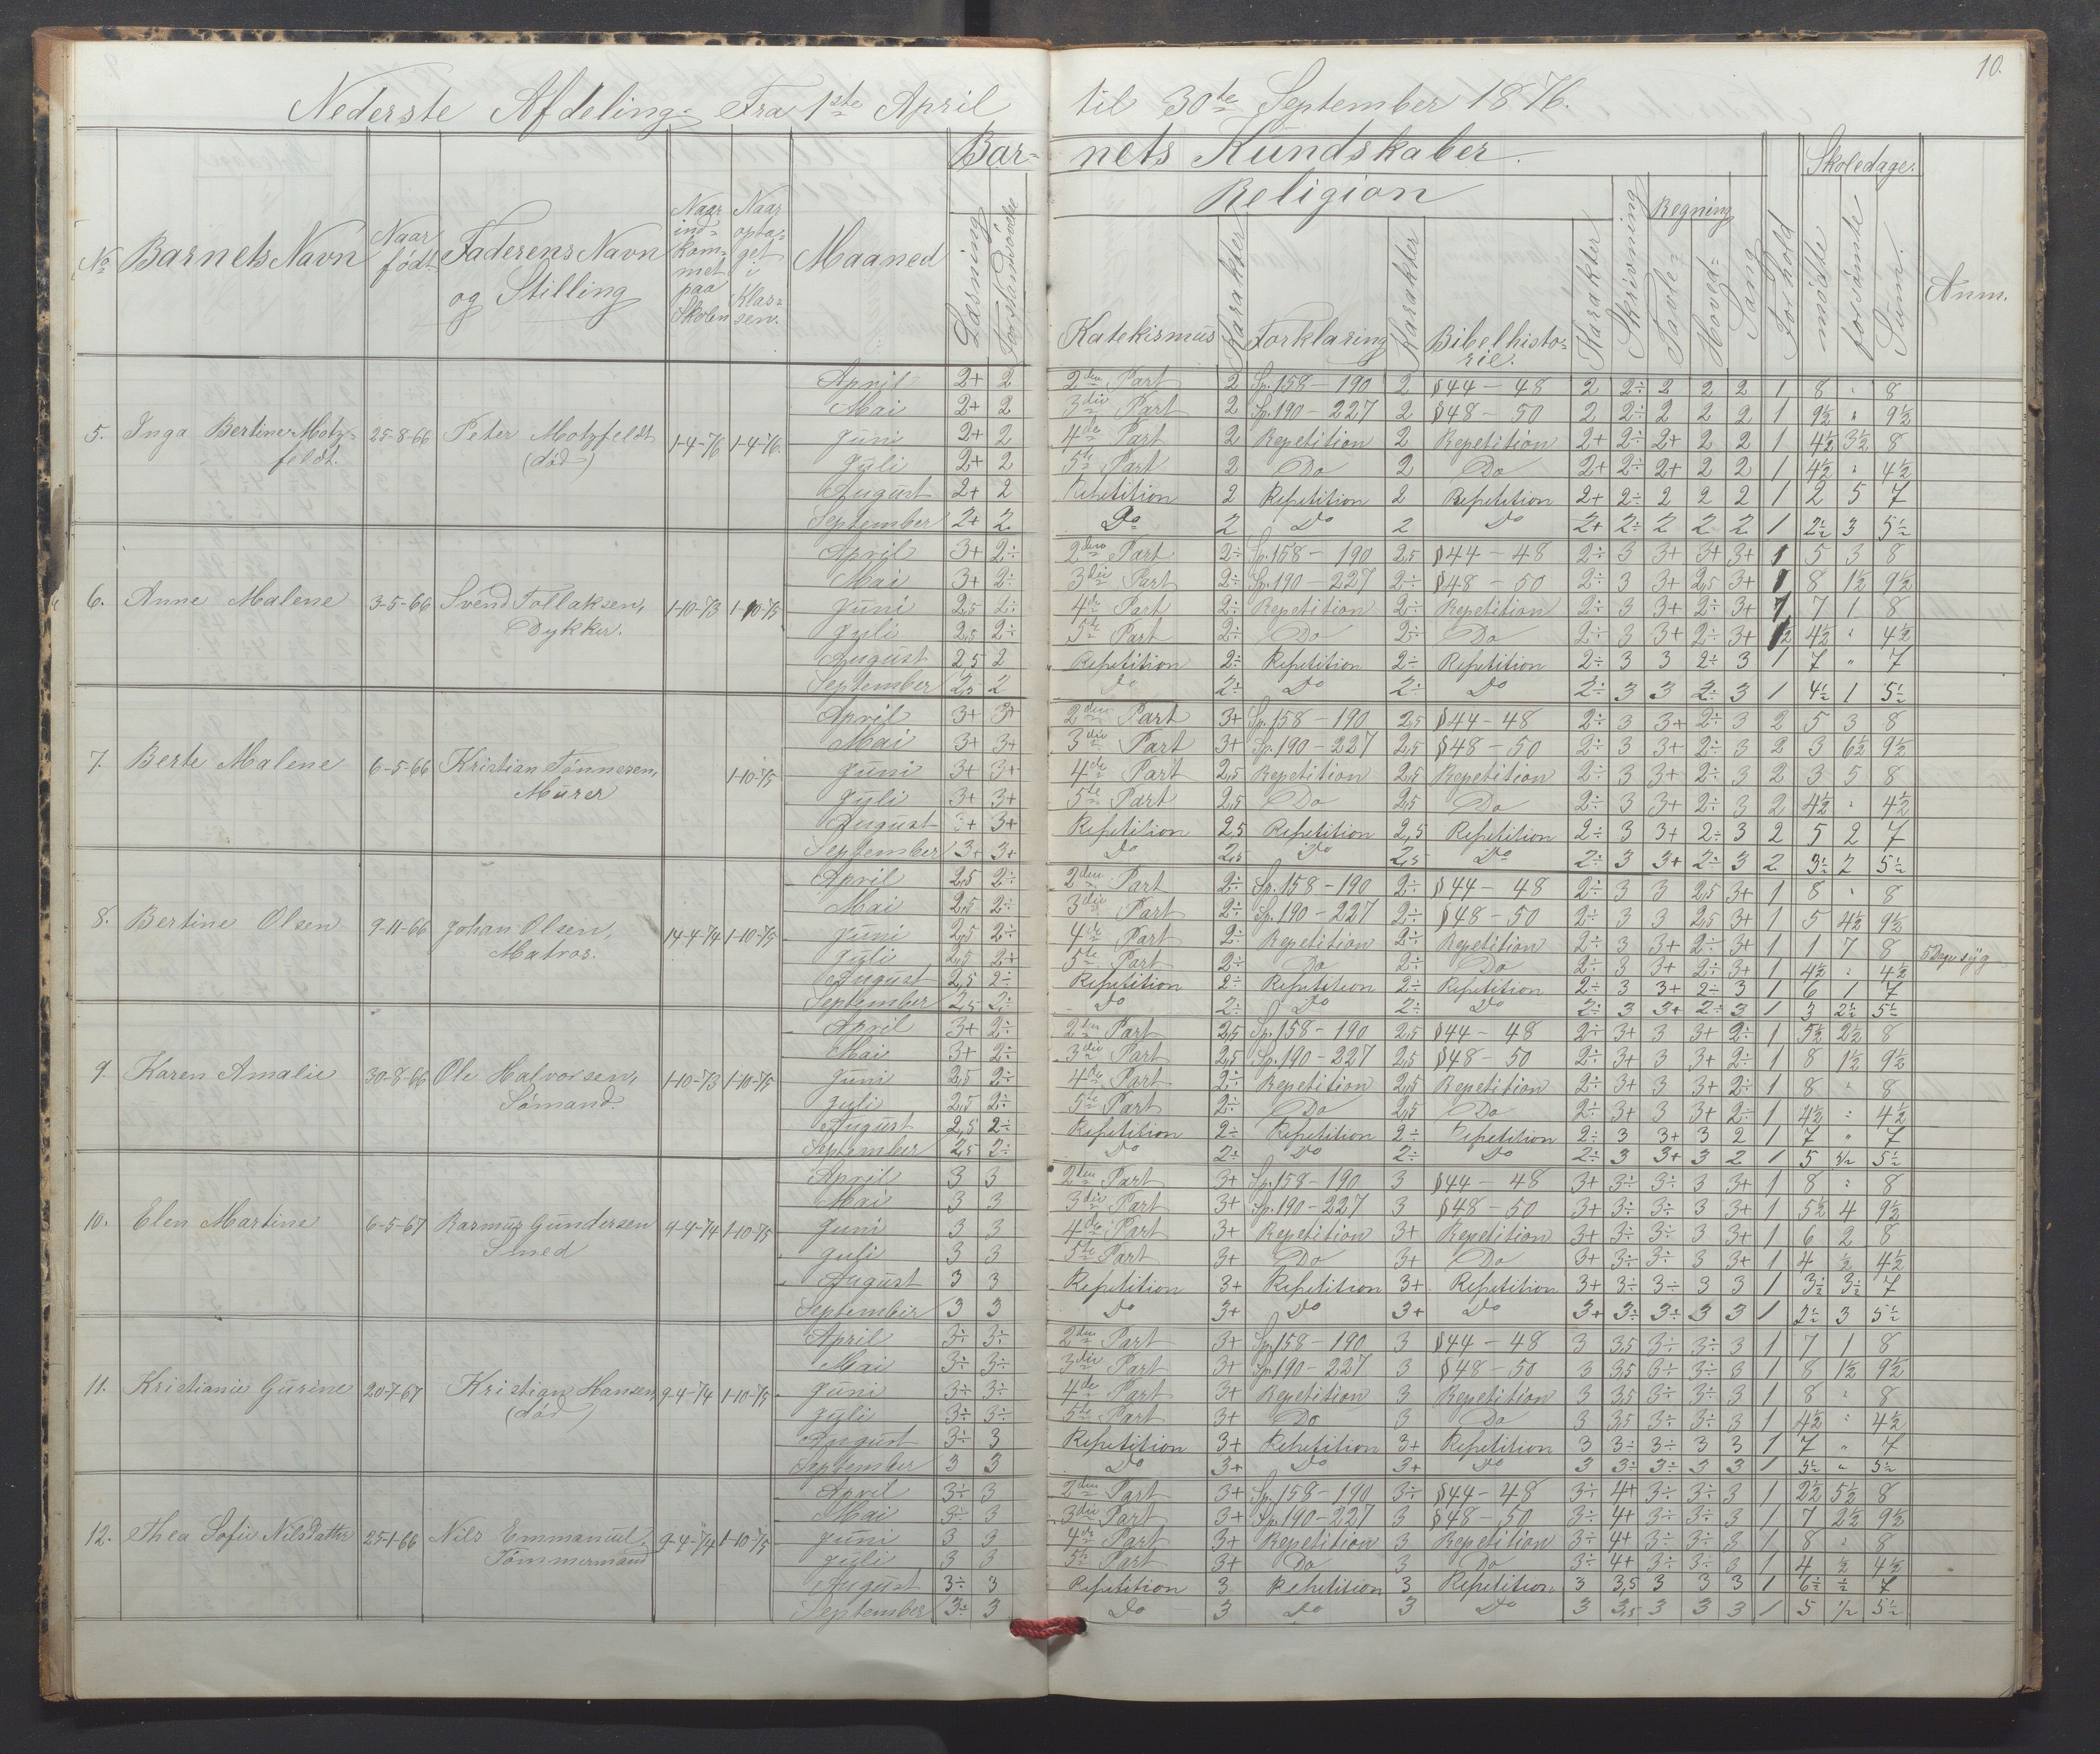 10.
Nederste Afdeling. Fra 1ste April til 30te September 1876.
Bar- nets Kundskaber. Skoledage.
Religion Regning
No Barnets Navn Naar født Faderens Navn og Stilling Naar ind- kom- met paa Skolen Naar opta- get i Klas- sen. Maaned Læsning Forstandsøvelse Katekismus Karakter Forklaring Karakter Bibelhisto- rie. Karakter Skrivning Tavle- Hoved- Sang Forhold mødte forsømte Sum. Anm.
5. Inga Bertine Motz- feldt. 25-8-66 Peter Motzfeldt (død) 1-4-76 1-4-76.
April 2+ 2 2den Part 2 Sp. 158-190 2 § 44-48 2 2÷ 2 2 2 1 8 " 8
Mai 2+ 2 3die Part 2 Sp. 190-227 2 § 48-50 2 2÷ 2 2 2 1 9½ " 9½
Juni 2+ 2 4de Part 2 Repetition 2 Repetition 2+ 2÷ 2+ 2 2 1 4½ 3½ 8
Juli 2+ 2 5te Part 2 Do 2 Do 2+ 2÷ 2+ 2 2 1 4½ " 4½
August 2+ 2 Repetition 2 Repetition 2 Repetition 2+ 2÷ 2 2 2 1 2 5 7
September 2+ 2 Do 2 Do 2 Do 2+ 2÷ 2 2 2 1 2½ 3 5½
6. Anne Malene 3-5-66 Svend Tollaksen, Dykker. 1-10-73 1-10-75
April 3+ 2÷ 2den Part 2÷ Sp. 158-190 2,5 § 44-48 2÷ 3 3+ 3+ 3+ 1 5 3 8
Mai 3+ 2÷ 3die Part 2÷ Sp. 190-227 2÷ § 48-50 2÷ 3 3+ 2,5 3+ 1 8 1½ 9½
Juni 2,5 2÷ 4de Part 2÷ Repetition 2÷ Repetition 2÷ 3 3+ 2÷ 3+ 1 7 1 8
Juli 2,5 2÷ 5te Part 2÷ Do 2÷ Do 2÷ 3 3+ 2÷ 3+ 1½ 4½ " 4½
August 2,5 2 Repetition 2÷ Repetition 2÷ Repetition 2÷ 3 3 2÷ 3 1 7 " 7
September 2,5 2 Do 2÷ Do 2÷ Do 2÷ 3 3 2÷ 3 1 4½ 1 5½
7. Berte Malene 6-5-66 Kristian Tønnesen, Murer 1-10-75
April 3+ 3+ 2den Part 3+ Sp. 158-190 2,5 § 44-48 2÷ 3 3+ 2÷ 3 2 5 3 8
Mai 3+ 3+ 3die Part 3+ Sp. 190-227 2,5 § 48-50 2÷ 3 3+ 2÷ 3 2 3 6½ 9½
Juni 3+ 3+ 4de Part 2,5 Repetition 2,5 Repetition 2÷ 3 3+ 2÷ 3 2 3 5 8
Juli 3+ 3+ 5te Part 2,5 Do 2,5 Do 2÷ 3 3+ 2÷ 3 2 4½ " 4½
August 3+ 3+ Repetition 2,5 Repetition 2,5 Repetition 2÷ 3 3+ 2÷ 3 2 5 2 7
September 3+ 3+ Do 2,5 Do 2,5 Do 2÷ 3 3+ 2÷ 3 2 3½ 2 5½
8. Bertine Olsen 9-11-66 Johan Olsen, Matros. 14-4-74 1-10-75
April 2,5 2÷ 2den Part 2÷ Sp. 158-190 2÷ § 44-48 2÷ 3 3 2,5 3+ 1 8 " 8
Mai 2,5 2÷ 3die Part 2÷ Sp. 190-227 2÷ § 48-50 2÷ 3 3 2,5 3+ 1 5 4½ 9½
Juni 2,5 2÷ 4de Part 2÷ Repetition 2÷ Repetition 2÷ 3 3+ 2÷ 3+ 1 1 7 8 5 Dage syg
Juli 2,5 2÷ 5te Part 2÷ Do 2÷ Do 2÷ 3 3+ 2÷ 3+ 1 4½ " 4½
August 2,5 2÷ Repetition 2÷ Repetition 2÷ Repetition 2÷ 3 3+ 2÷ 3 1 6 1 7
September 2,5 2÷ Do 2÷ Do 2÷ Do 2÷ 3 3+ 2÷ 3 1 3 2½ 5½
9. Karen Amalie 30-8-66 Ole Halvorsen, Sømand. 1-10-73 1-10-75
April 3+ 2÷ 2den Part 2,5 Sp. 158-190 2,5 § 44-48 2÷ 3+ 3 3+ 2÷ 1 5½ 2½ 8
Mai 3+ 2÷ 3die Part 2,5 Sp. 190-227 2,5 § 48-50 2÷ 3+ 3 3+ 2÷ 1 8 1½ 9½
Juni 2,5 2÷ 4de Part 2÷ Repetition 2,5 Repetition 2÷ 3+ 3 3+ 2÷ 1 8 " 8
Juli 2,5 2÷ 5te Part 2÷ Do 2,5 Do 2÷ 3+ 3 3+ 2÷ 1 4½ " 4½
August 2,5 2÷ Repetition 2÷ Repetition 2÷ Repetition 2÷ 3 3+ 3 2 1 7 " 7
September 2,5 2÷ Do 2÷ Do 2÷ Do 2÷ 3 3+ 3 2 1 5 ½ 5½
10. Elen Martine 6-5-67 Rasmus Gundersen Smed 9-4-74 1-10-75
April 3 3 2den Part 3+ Sp. 158-190 3 § 44-48 3+ 3÷ 3÷ 3 3+ 1 8 " 8
Mai 3 3 3die Part 3+ Sp. 190-227 3 § 48-50 3+ 3÷ 3÷ 3 3+ 1 5½ 4 9½
Juni 3 3 4de Part 3+ Repetition 3+ Repetition 3+ 3÷ 3÷ 3 3+ 1 6 2 8
Juli 3 3 5te Part 3+ Do 3+ Do 3+ 3÷ 3÷ 3 3+ 1 4 ½ 4½
August 3 3 Repetition 3+ Repetition 3+ Repetition 3+ 3÷ 3÷ 3 3 1 3½ 3½ 7
September 3 3 Do 3+ Do 3+ Do 3+ 3÷ 3÷ 3 3 1 2½ 3 5½
11. Kristianie Gurine 20-7-67 Kristian Hansen, (død) 9-4-74 1-10-75
April 3÷ 3÷ 2den Part 3+ Sp. 158-190 3 § 44-48 3 3,5 3÷ 3÷ 3 1 7 1 8
Mai 3÷ 3÷ 3die Part 3+ Sp. 190-227 3 § 48-50 3 3,5 3÷ 3÷ 3 1 8 1½ 9½
Juni 3÷ 3÷ 4de Part 3+ Repetition 3 Repetition 3 3,5 3÷ 3÷ 3 1 8 " 8
Juli 3÷ 3÷ 5te Part 3+ Do 3 Do 3 3,5 3÷ 3÷ 3 1 4½ " 4½
August 3÷ 3 Repetition 3+ Repetition 3+ Repetition 3 3÷ 3÷ 3 3 1 7 " 7
September 3 3 Do 3+ Do 3+ Do 3 3÷ 3÷ 3 3 1 5½ " 5½
12. Thea Sofie Nilsdatter 25-1-66 Nils Emmanuel, Tømmermand 9-4-74 1-10-75
April 3÷ 3 2den Part 3+ Sp. 158-190 3÷ § 44-48 3÷ 4+ 3÷ 3÷ 3 1 2½ 5½ 8
Mai 3÷ 3 3die Part 3+ Sp. 190-227 3 § 48-50 3÷ 4+ 3÷ 3÷ 3 1 7 2½ 9½
Juni 3 3 4de Part 3+ Repetition 3 Repetition 3÷ 4+ 3÷ 3÷ 3 1 8 " 8
Juli 3 3 5te Part 3+ Do 3 Do 3÷ 4+ 3÷ 3÷ 3 1 4 ½ 4½
August 3÷ 3 Repetition 3 Repetition 3 Repetition 3 3,5 3 3 3 1 6½ ½ 7
September 3÷ 3 Do 3 Do 3 Do 3 3,5 3 3 3 1 5 ½ 5½